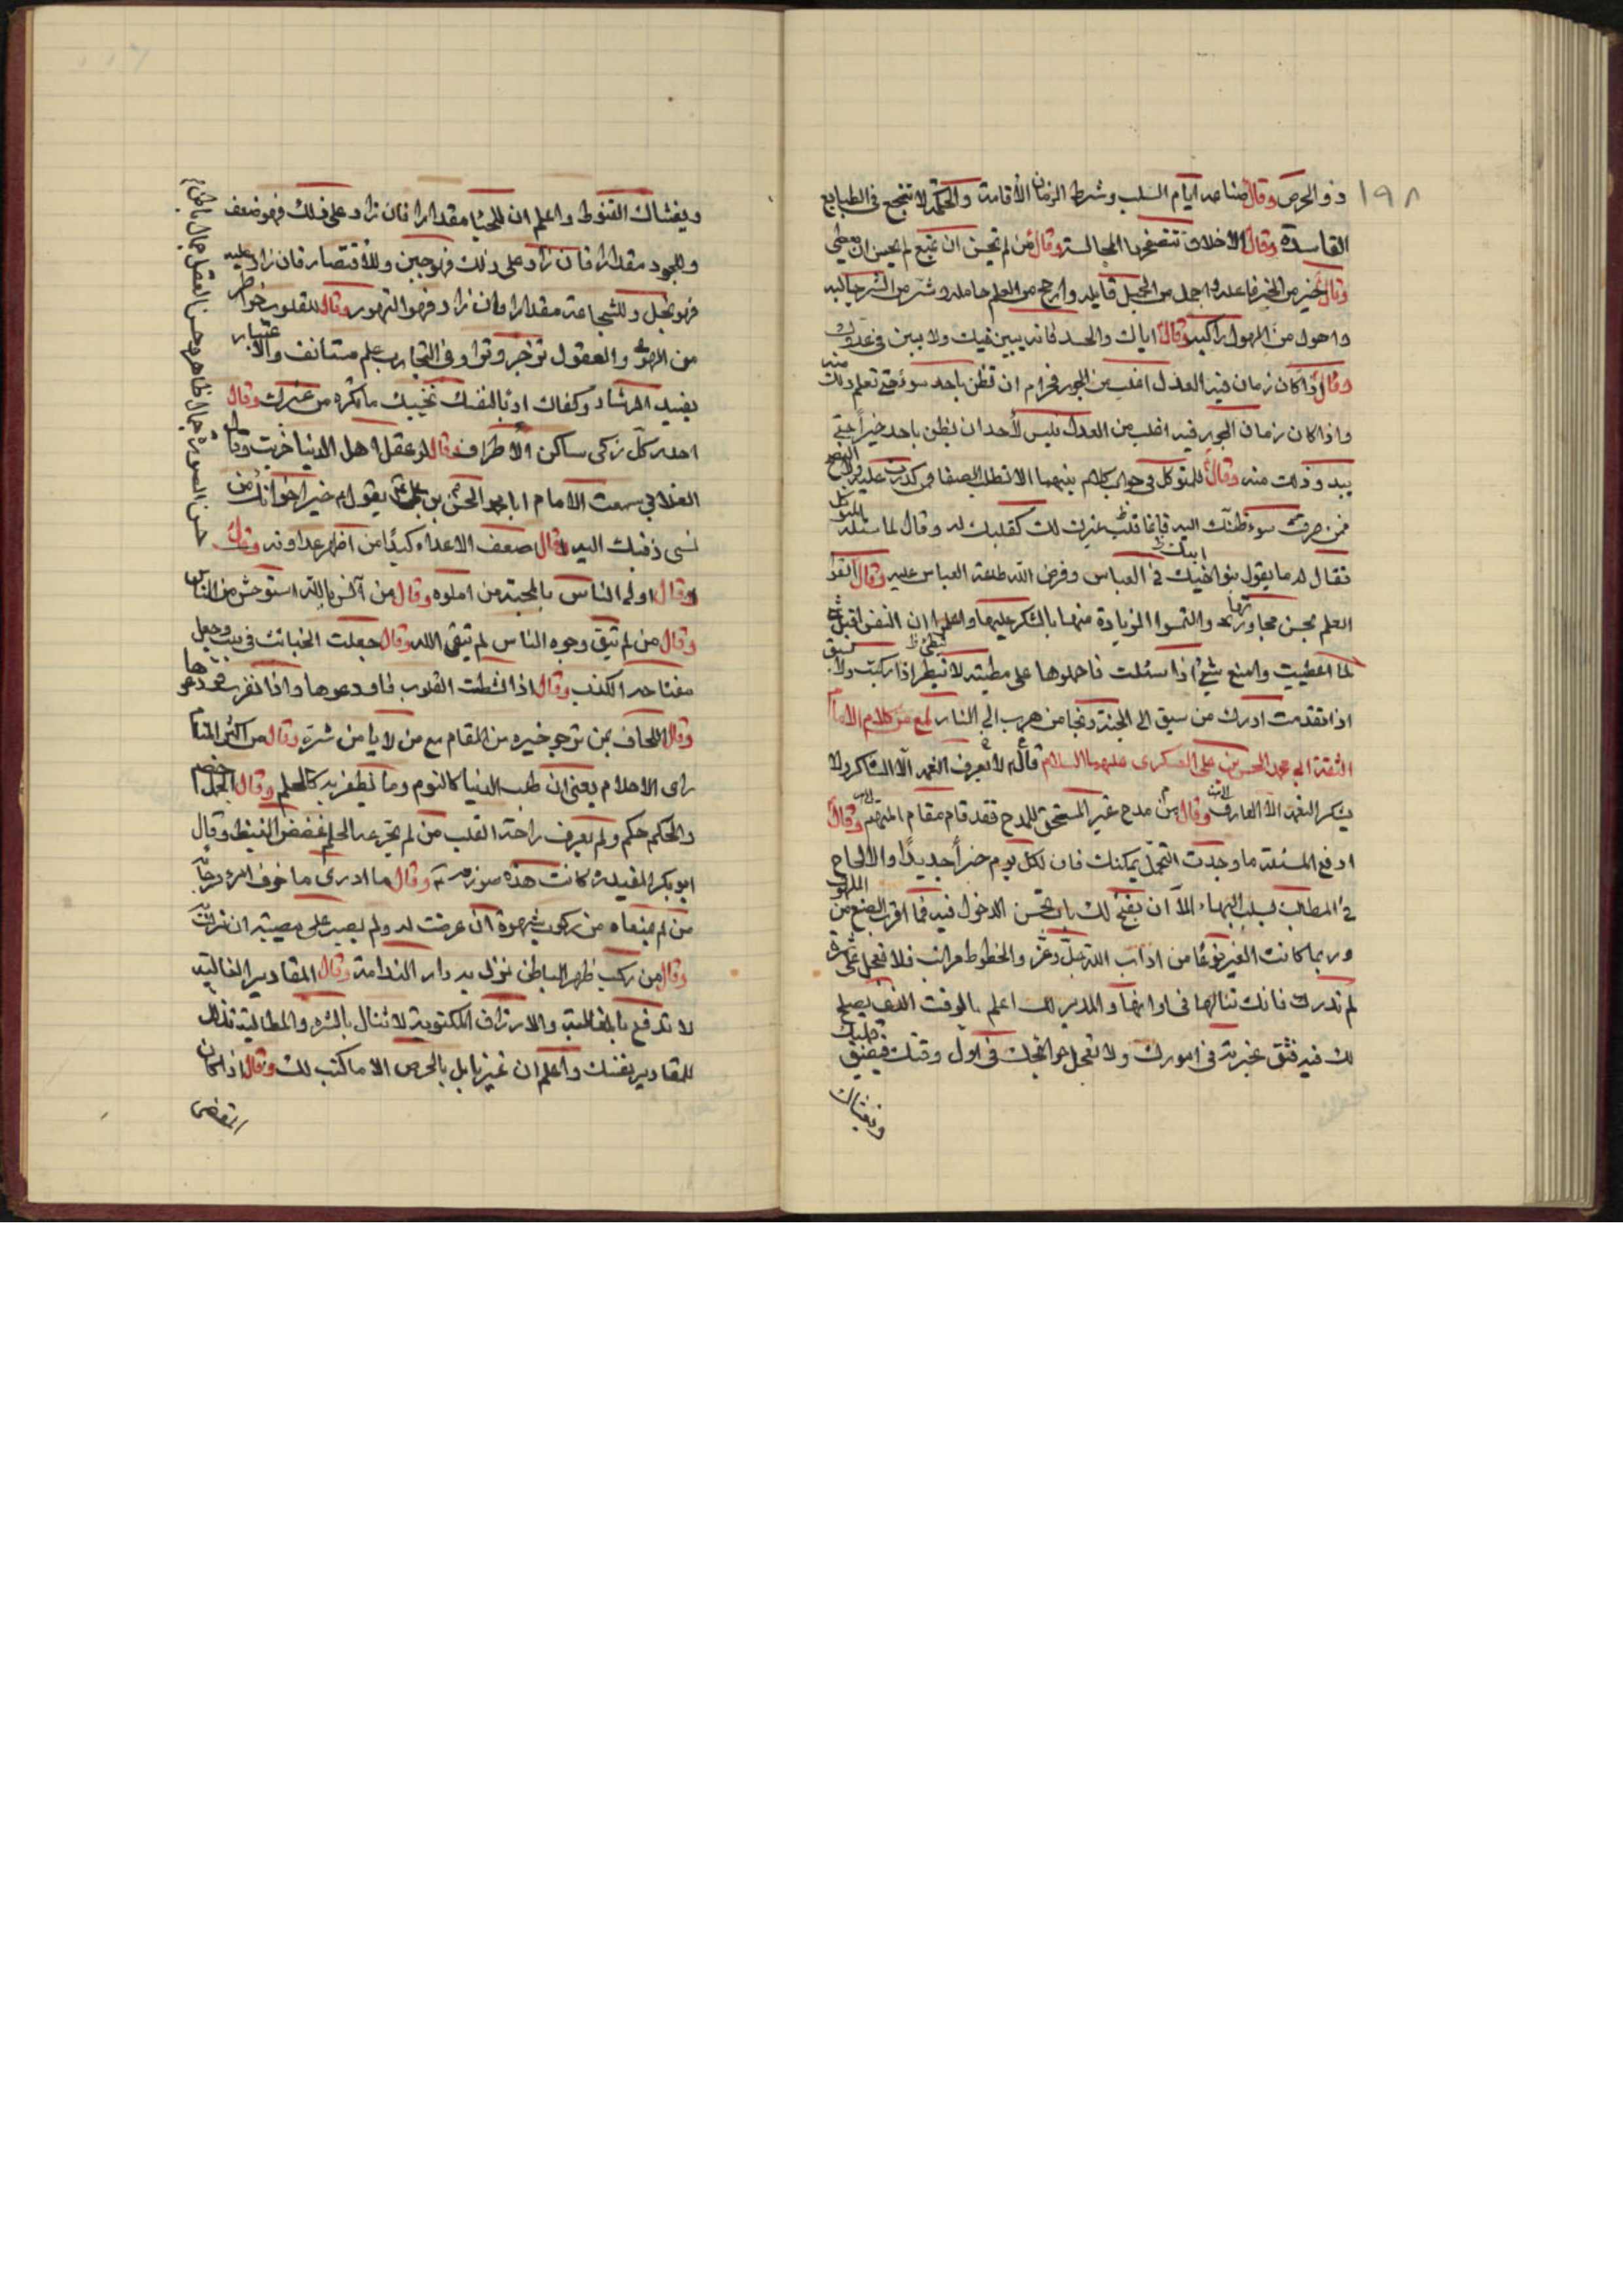 ١٩٨
ذو الحرص وقال مصاحب ايام السلب وشرط الزمان الأقامة والحكمة لا تنجع فى الطبايع
الفاسدة وقال الاخلاق تتصفحها المجالسة وقال من لم يحسن ان يمنع لم يحسن ان يعطي
وقال خير من الخير فاعله واجمل من الجميل قايله وارجح من العلم حامله وشر من الشر جالبه
واهول من الهول راكبه وقال اياك والحسد فانه يبين فيك ولا يبين فى عدوك
وقال اذا كان زمان فيه العدل اغلب من الجور فحرام ان تظن باحد سوءً حتى تعلم ذلك منه
واذا كان زمان الجور فيه اغلب من العدل فليس لأحد ان يظن باحد خيراً حتى
يبدو ذلك منه وقال للمتوكل فى جواب كلام بينهما لا تطلب الصفا ممن كدرت عليه ولا النصح
ممن صرفت سوء ظنك اليه فانما قلب غيرك لك كقلبك له وقال لما سئله المتوكل
فقال له ما يقول بنو ابيك فى العباس وفرض الله طاعة العباس عليه وقال القوا
العلم بحسن مجاورتها والتمسوا الزيادة منها بالشكر عليها واعلموا ان النفس اقبل شئ
لما اعطيت وامنع شئ اذا سئلت فاحملوها على مطية لا تبطئ اذا ركبت ولا تسبق
اذا تقدمت ادرك من سبق الى الجنة ونجا من هرب الى النار لمع من كلام الامام
الثقة ابى محمد الحسن بن على العسكرى عليهما السلام قال لا يعرف النعمة الّا الشاكر ولا
يشكر النعمة الّا العارف وقال من مدح غير المستحق للمدح فقد قام مقام المتهم وقال
ادفع المسئلة ما وجدت التحمل يمكنك فان لكل يوم خبراً جديداً والالحاح
فى المطالب يسلب البهاء الّا ان يفتح لك باب تحسن الدخول فيه فما اقرب الصنع من الملهوف
وربما كانت الغير نوعًا من اداب الله عزّ وجلّ والحظوظ مراتب فلا تعجل على ثمرة
لم تدرك فانك تنالها فى اوانها والمدبر لك اعلم بالوقت الذى يصلح
لك فيه فثق بخيرته فى امورك ولا تعجل حوائجك فى اول وقتك فيضيق قلبك
ويغشاك
ويغشاك القنوط واعلم ان للحيا مقدارا فان زاد على ذلك فهو ضعف
وللجود مقدارا فان زاد على ذلك فهو جبن وللأقتصار فان زاد عليه
فهو بخل وللشجاعة مقدارا فان زاد فهو التهور وقال للقلوب خواطر
من الهوى والعقول تزجر وتزاد فى التجارب علم مستانف والاعتبار
يفيد الرشاد وكفاك ادبا لنفسك تجنبك ما تكره من غيرك وقال
احذر كل زكى ساكن الأطراف وقال لو عقل اهل الدنيا خربت وقال
الغلابي سمعت الامام ابا محمد الحسن بن على يقول خير اخوانك من
نسى ذنبك اليه وقال اضعف الاعداء كيدًا من اظهر عداوته وقال حسن الصورة جمال ظاهر وحسن العقل جمال باطن
وقال اولى الناس بالمحبة من املوه وقال من آنس بالله استوحش من الناس
وقال من لم يتق وجوه الناس لم يتقى الله وقال جعلت الخبائث فى بيت وجعل
مفتاحه الكذب وقال اذا نشطت القلوب فاودعوها واذا نفرت فودعوها
وقال اللحاق بمن ترجو خيره من المقام مع من لا يامن شره وقال من اكثر المنام
راى الاحلام يعنى ان طلب الدنيا كالنوم وما يظفر به كالحلم وقال الجهل خصم
والحكم حكم ولم يعرف راحة القلب من لم يجرعه الحلم غصص الغيظ وقال
ابو بكر المفيد كانت هذه وقال ما ادرى ما خوف امرء ورجاء
من لم يمنعاه من ركوب شهوة ان عرضت له ولم يصبر على مصيبة ان نزلت
وقال من ركب ظهر الباطل نزل به دار الندامة وقال المقادير الغالبة
لا تدفع بالمغالبة والارزاق المكتوبة لا تنال بالشره والمطالبة تذلل
للمقادير نفسك واعلم ان غير نايل بالحرص الا ما كتب لك وقال اذا كان
المقضى